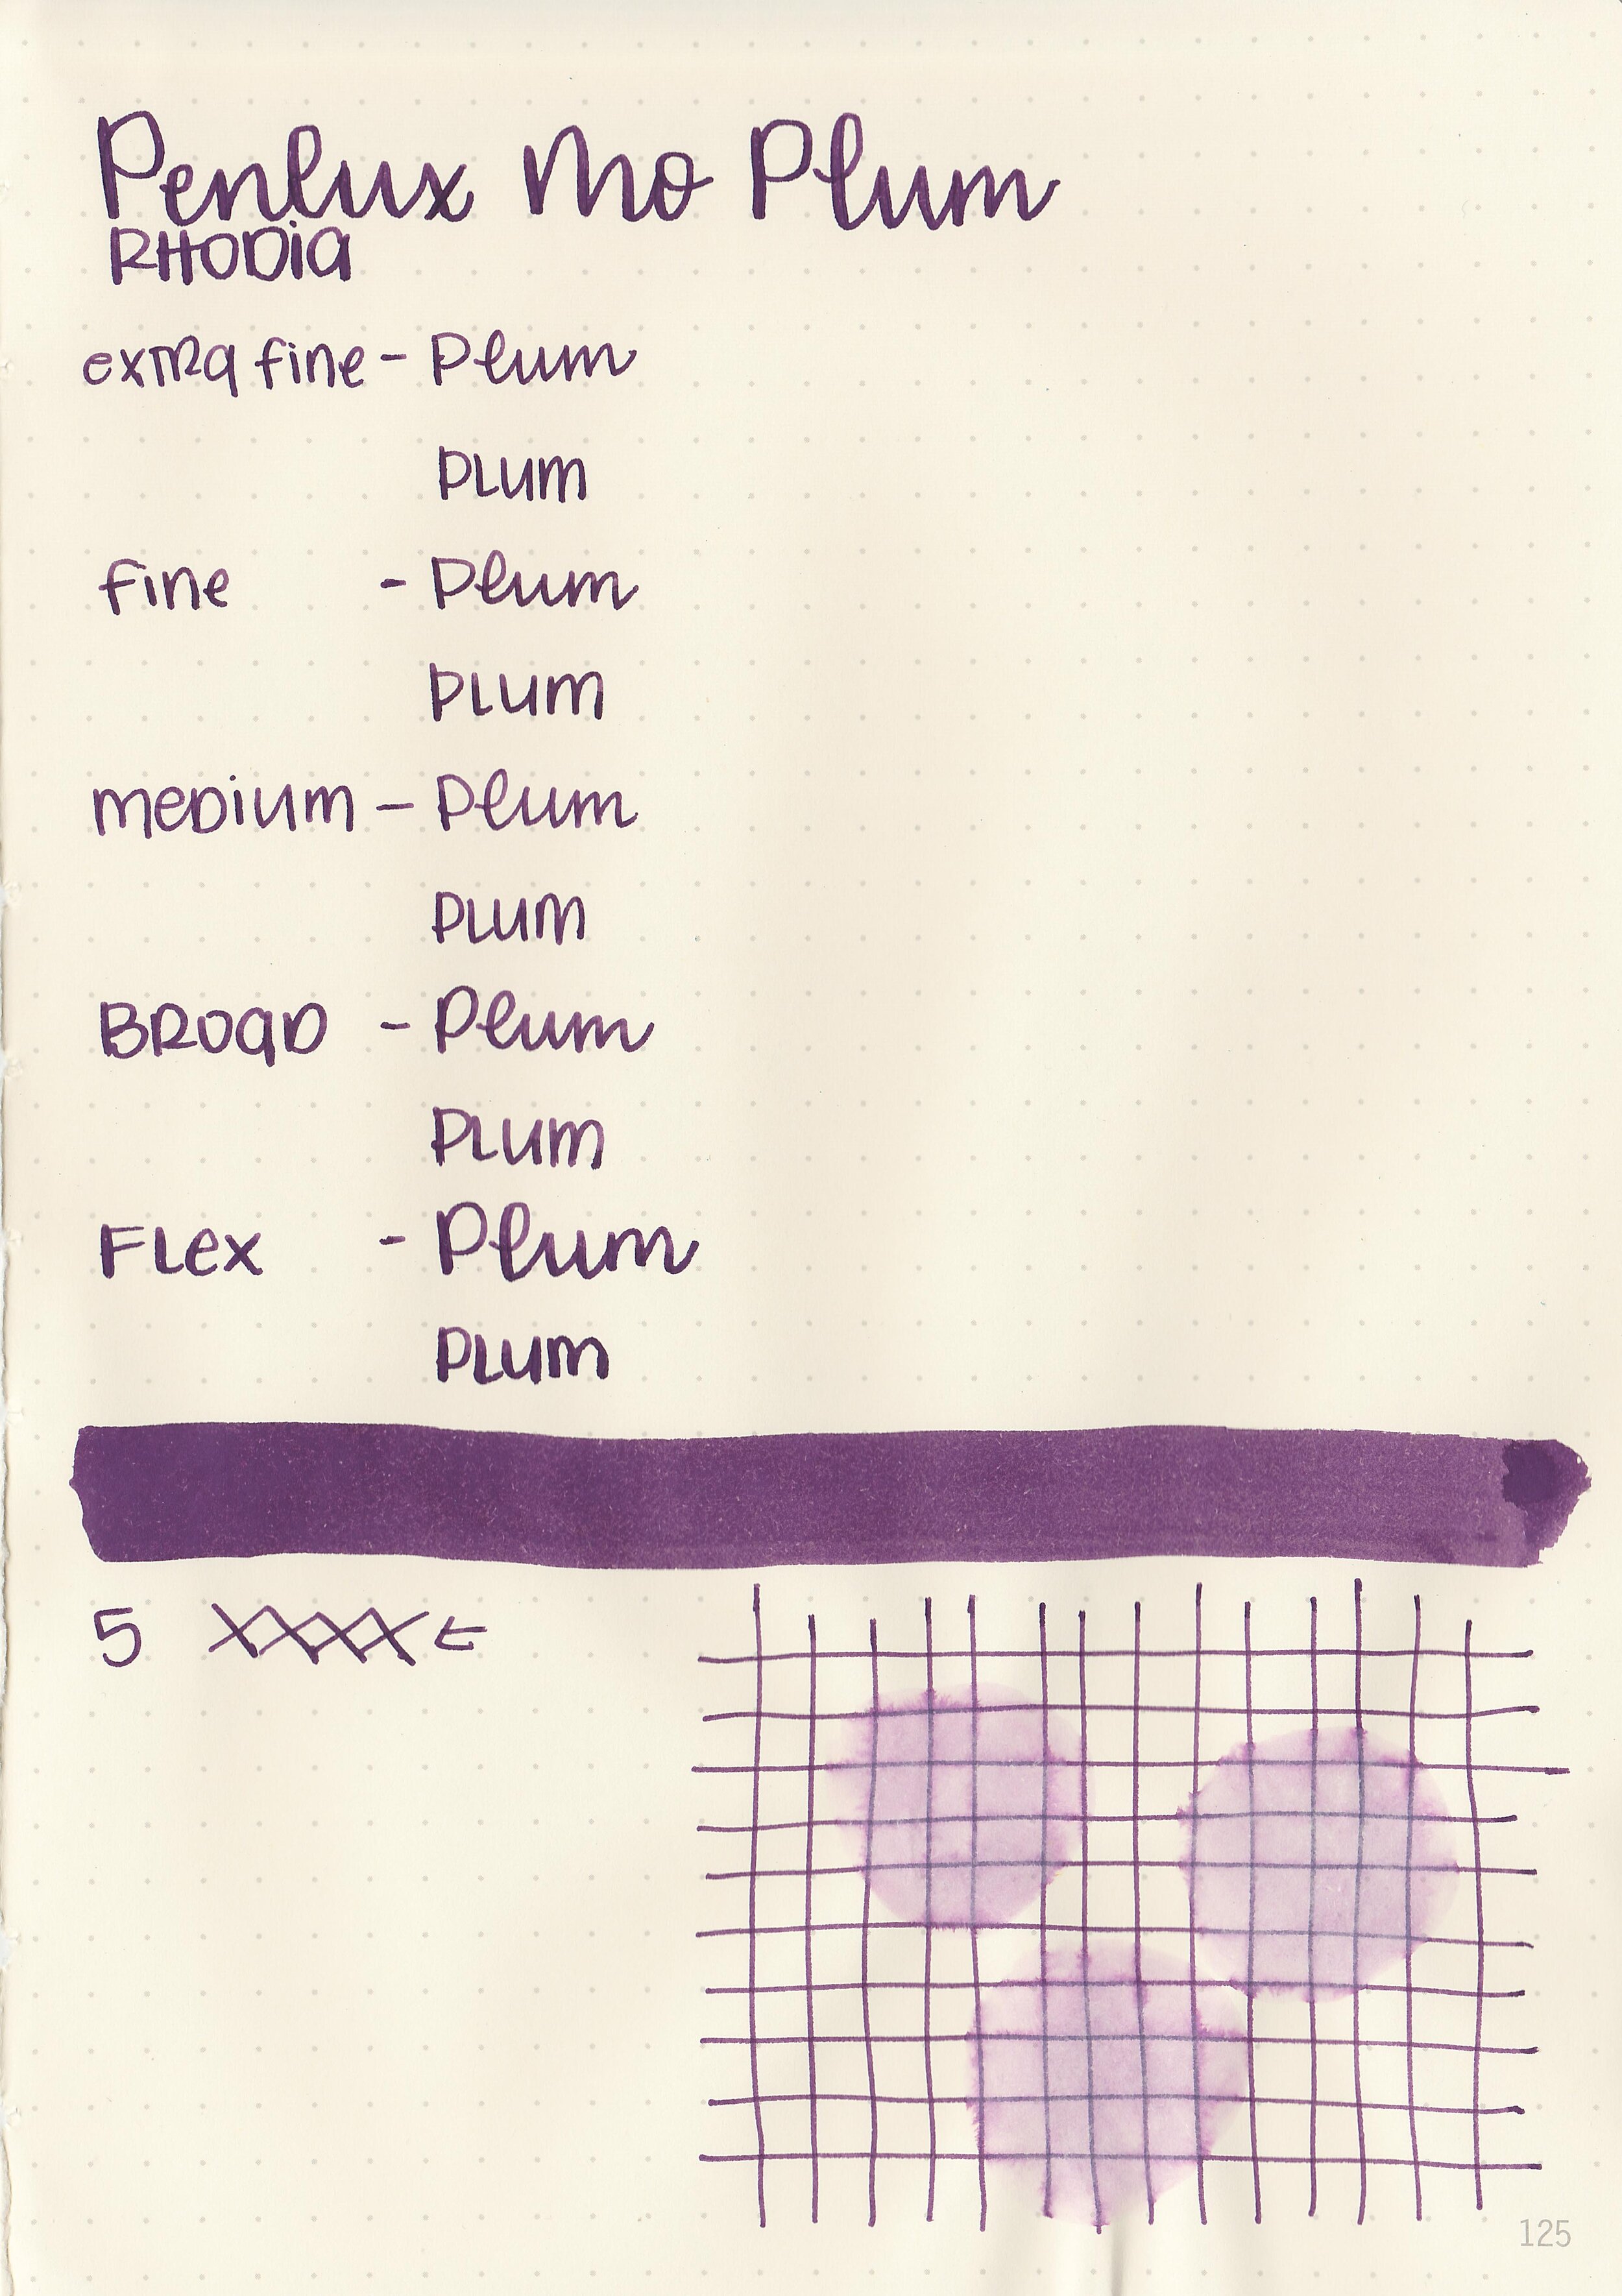 Penlux Mo Plum
RHODIA
extra fine - Plum
PLUM
fine - Plum
PLUM
MEDIUM - Plum
PLUM
BROAD - Plum
PLUM
FLex - Plum
PLUM
5 XXXX ←
125